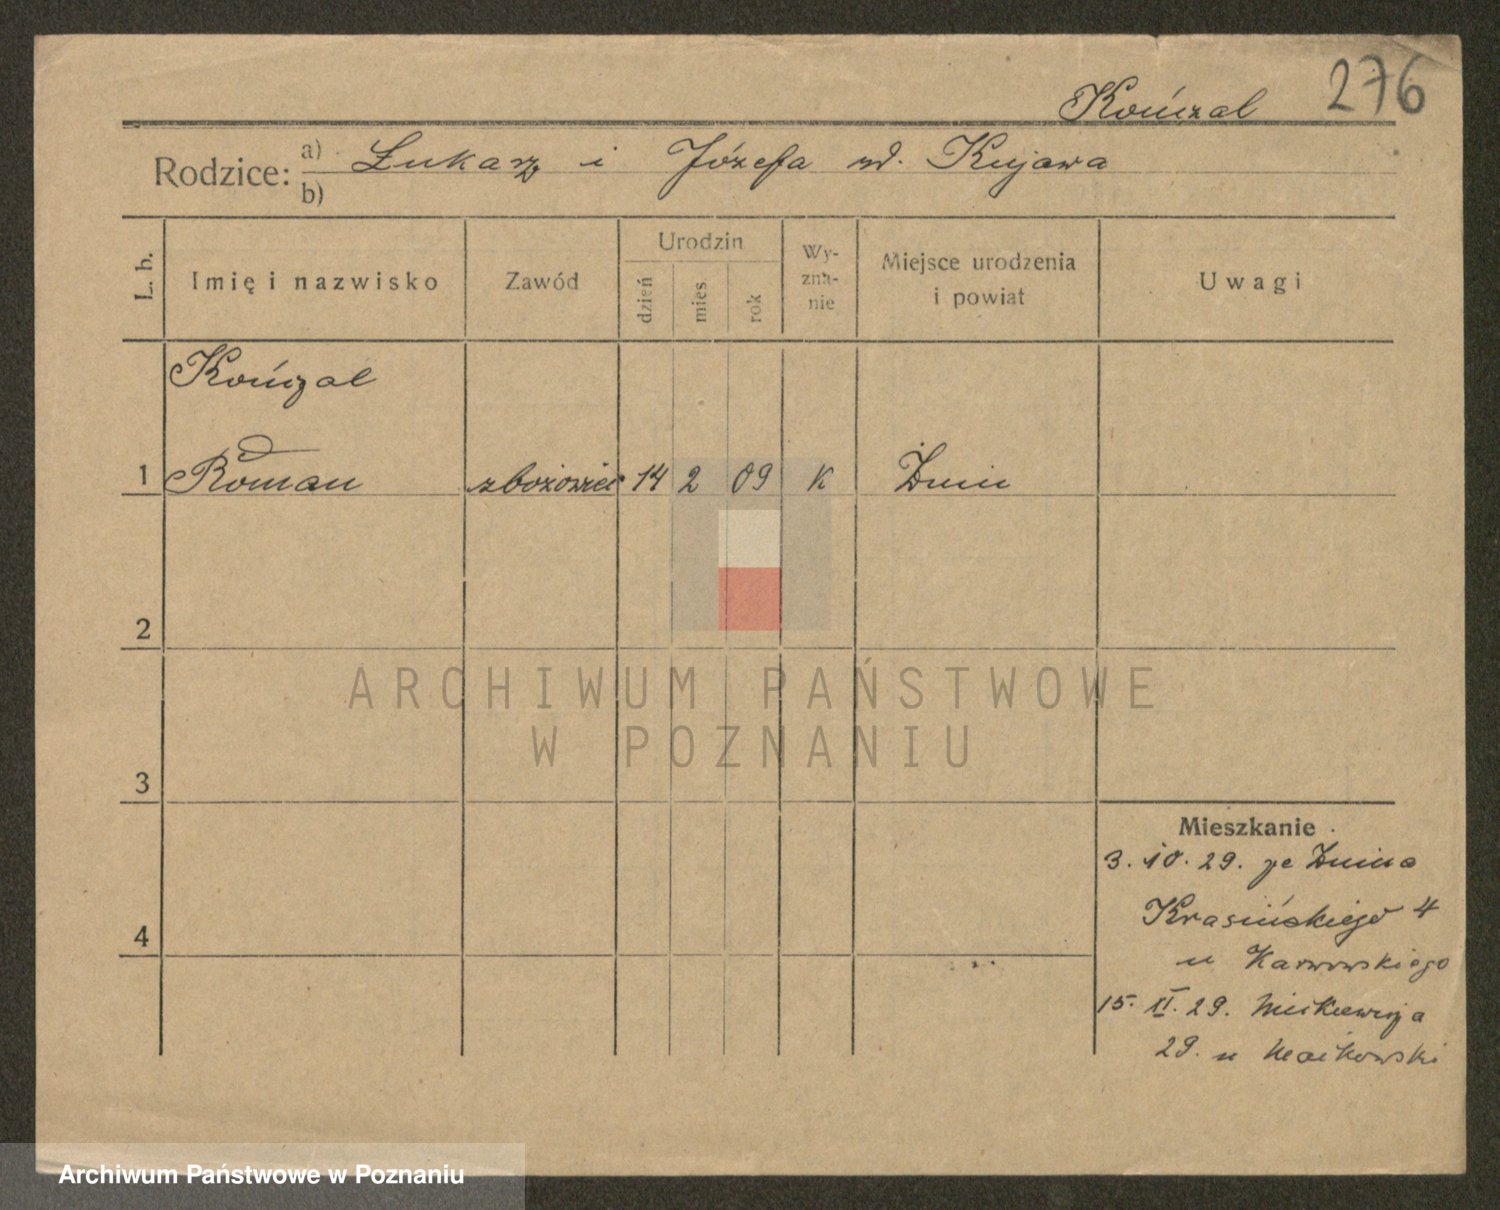 276
Kończal
Rodzice: a) Łukasz i Józefa zd. Kujawa
b)
L. b.
Imię i nazwisko
Zawód
Urodzin
dzień
mies
rok
Wy-
zna-
nie
Miejsce urodzenia
i powiat
Uwagi
Kończal
1 Roman zbożowiec 14 2 09 K Żnin
2
3
4
Mieszkanie
3. 10. 29. ze Żnina
Krasińskiego 4
u Karwowskiego
15. XI. 29. Mickiewicza
29. u
ARCHIWUM PAŃSTWOWE
W POZNANIU
Archiwum Państwowe w Poznaniu